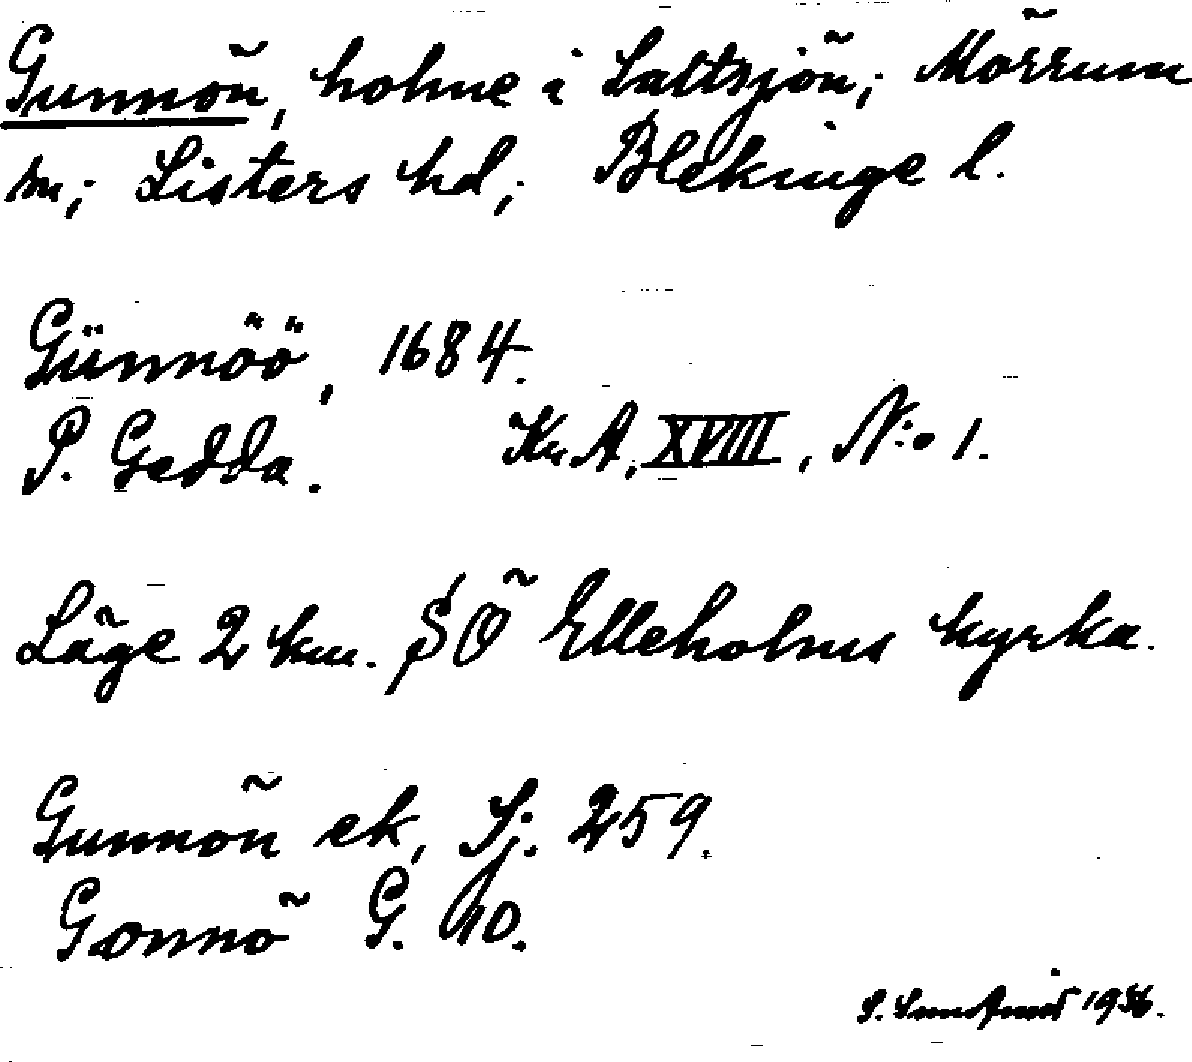 Gunnön, holme i Saltsjön; Mörrum
sn; Listers hd; Blekinge l.
Günnöö, 1684.
P. Gedda. Kr. A, XVIII, N:o 1.
Läge 2 km. SÖ Elleholms kyrka.
Gunnön ek, Sj. 259.
Gonnö G. 40.
S. 1936.